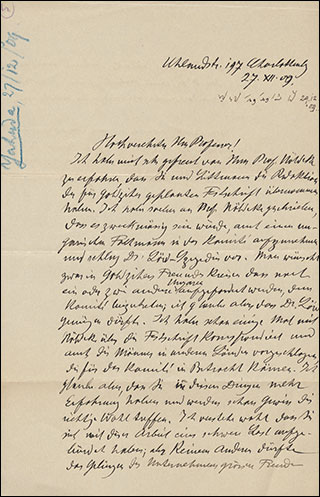 Uhlandstr. 197 Charlottenbg
27. XII. 09.
Yahuda 27/12/09
Hochverehrter Herr Professor!
Ich habe mich sehr gefreut von Herrn Prof. Nöldeke
zu erfahren, dass Sie und Littmann die Redaktion
der für Goldziher geplanten Festschrift übernommen
haben. Ich habe soeben an Prof. Nöldeke geschrieben,
dass es zweckmässig sein würde, auch einen un-
garischen Fachmann in das Komité aufzunehmen
und schlug Dr. Löw-Szegedin vor. Man wünscht
zwar in Goldzihers Freundes Kreisen dass noch
ein oder zwei andere Ungarn aufgefordert werden, dem
Komité beizutreten; ich glaube aber dass Dr. Löw
genügen dürfte. Ich habe schon einige Mal mit
Nöldeke über die Festschrift korrespondiert und
auch die Männer in anderen Länder vorgeschlagen
die für das Komité in Betracht kämen. Ich
glaube aber, dass Sie in diesen Dingen mehr
Erfahrung haben und werden schon gewiss die
richtige Wahl treffen. Ich verstehe wohl dass Sie
sich mit dieser Arbeit eine schwere Last aufge-
bürdet haben; aber keinem Anderen dürfte
das Gelingen des Unternehmens grössere Freude